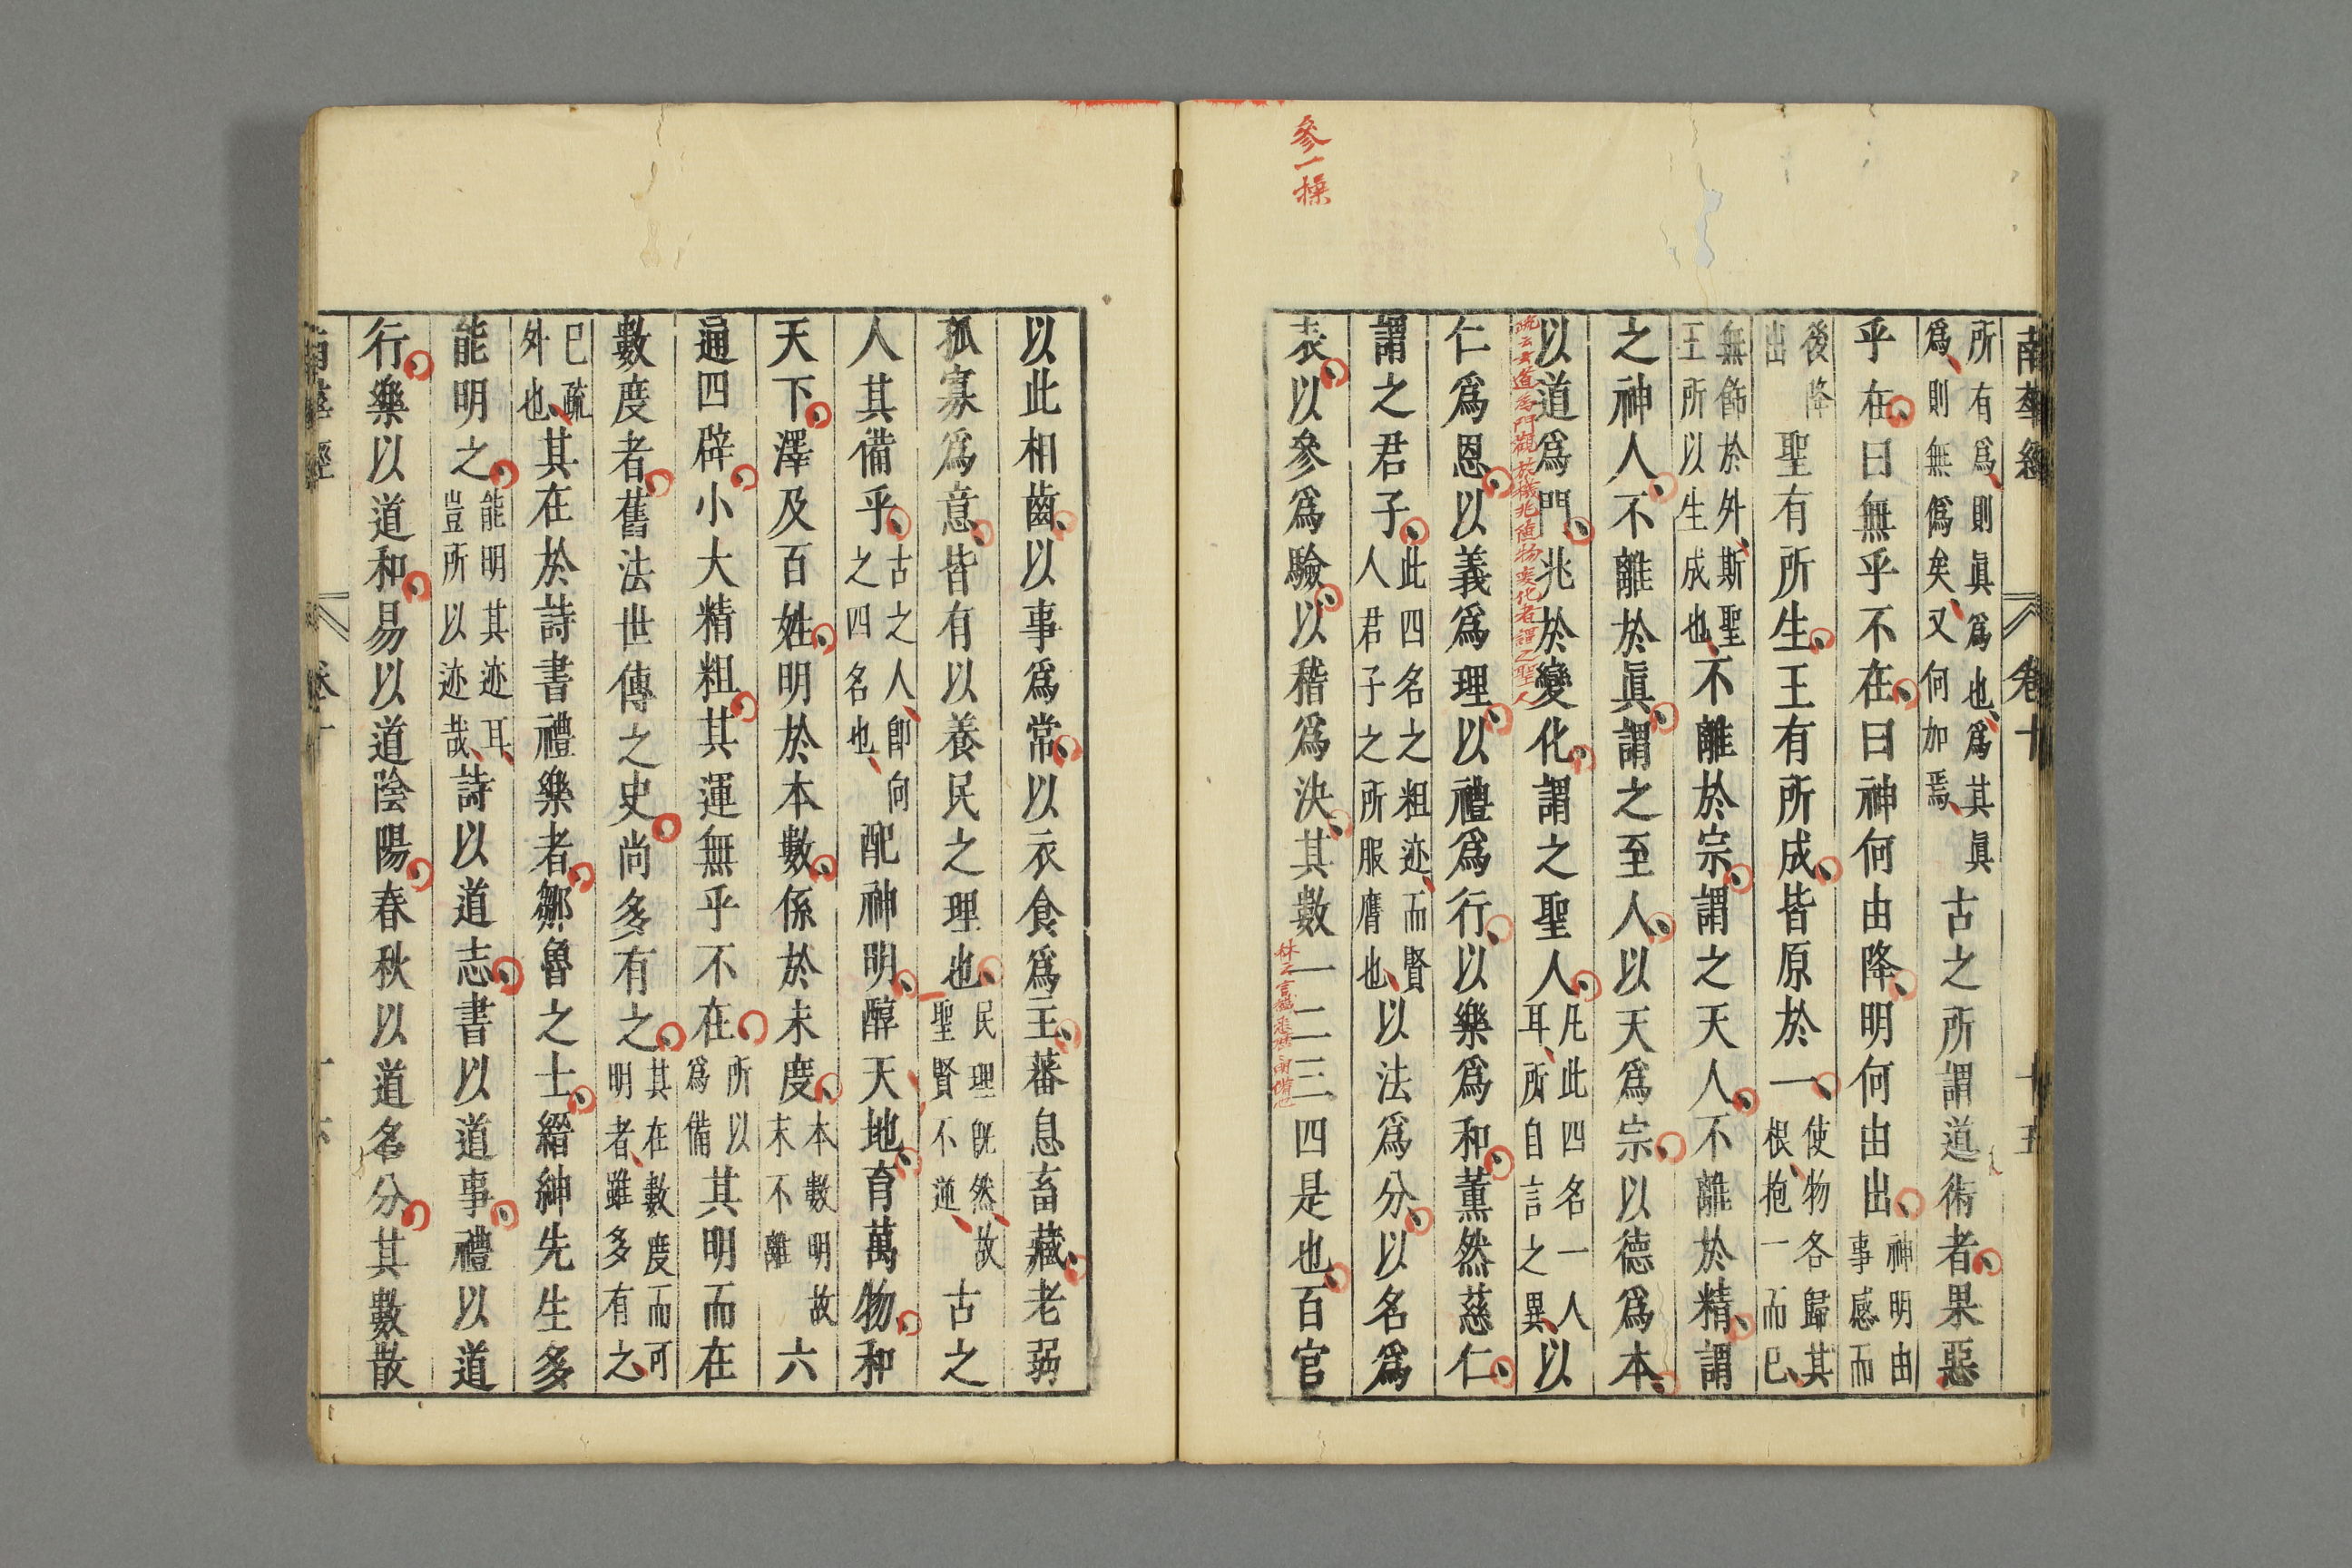 南華經 卷十 十五
所有爲則眞爲也爲其眞
爲則無僞矣又何加焉
古之所謂道術者果惡
乎在曰無乎不在曰神何由降明何由出
神明由
事感而
後降
出
聖有所生王有所成皆原於一
使物各歸其
根抱一而已
無飾於外斯聖
王所以生成也
不離於宗謂之天人不離於精謂
之神人不離於眞謂之至人以天爲宗以德爲本
以道爲門兆於變化謂之聖人
凡此四名一人
耳所自言之異
以
疏云以道爲門觀於機兆隨物變化者謂之聖人
仁爲恩以義爲理以禮爲行以樂爲和薫然慈仁
謂之君子
此四名之粗迹而賢
人君子之所服膺也
以法爲分以名爲
表以參爲驗以稽爲決其數一二三四是也百官
參一操
以此相齒以事爲常以衣食爲主蕃息畜藏老弱
孤寡爲意皆有以養民之理也
民理旣然故
聖賢不逆
古之
人其備乎
古之人卽向
之四名也
配神明醇天地育萬物和
天下澤及百姓明於本數係於末度
本數明故
末不離
六
通四辟小大精粗其運無乎不在
所以
爲備
其明而在
數度者舊法世傳之史尚多有之
其在數度而可
明者雖多有之
已疏
外也
其在於詩書禮樂者鄒魯之士縉紳先生多
能明之
能明其迹耳
豈所以迹哉
詩以道志書以道事禮以道
行樂以道和易以道陰陽春秋以道名分其數散
南華經 卷十 十六